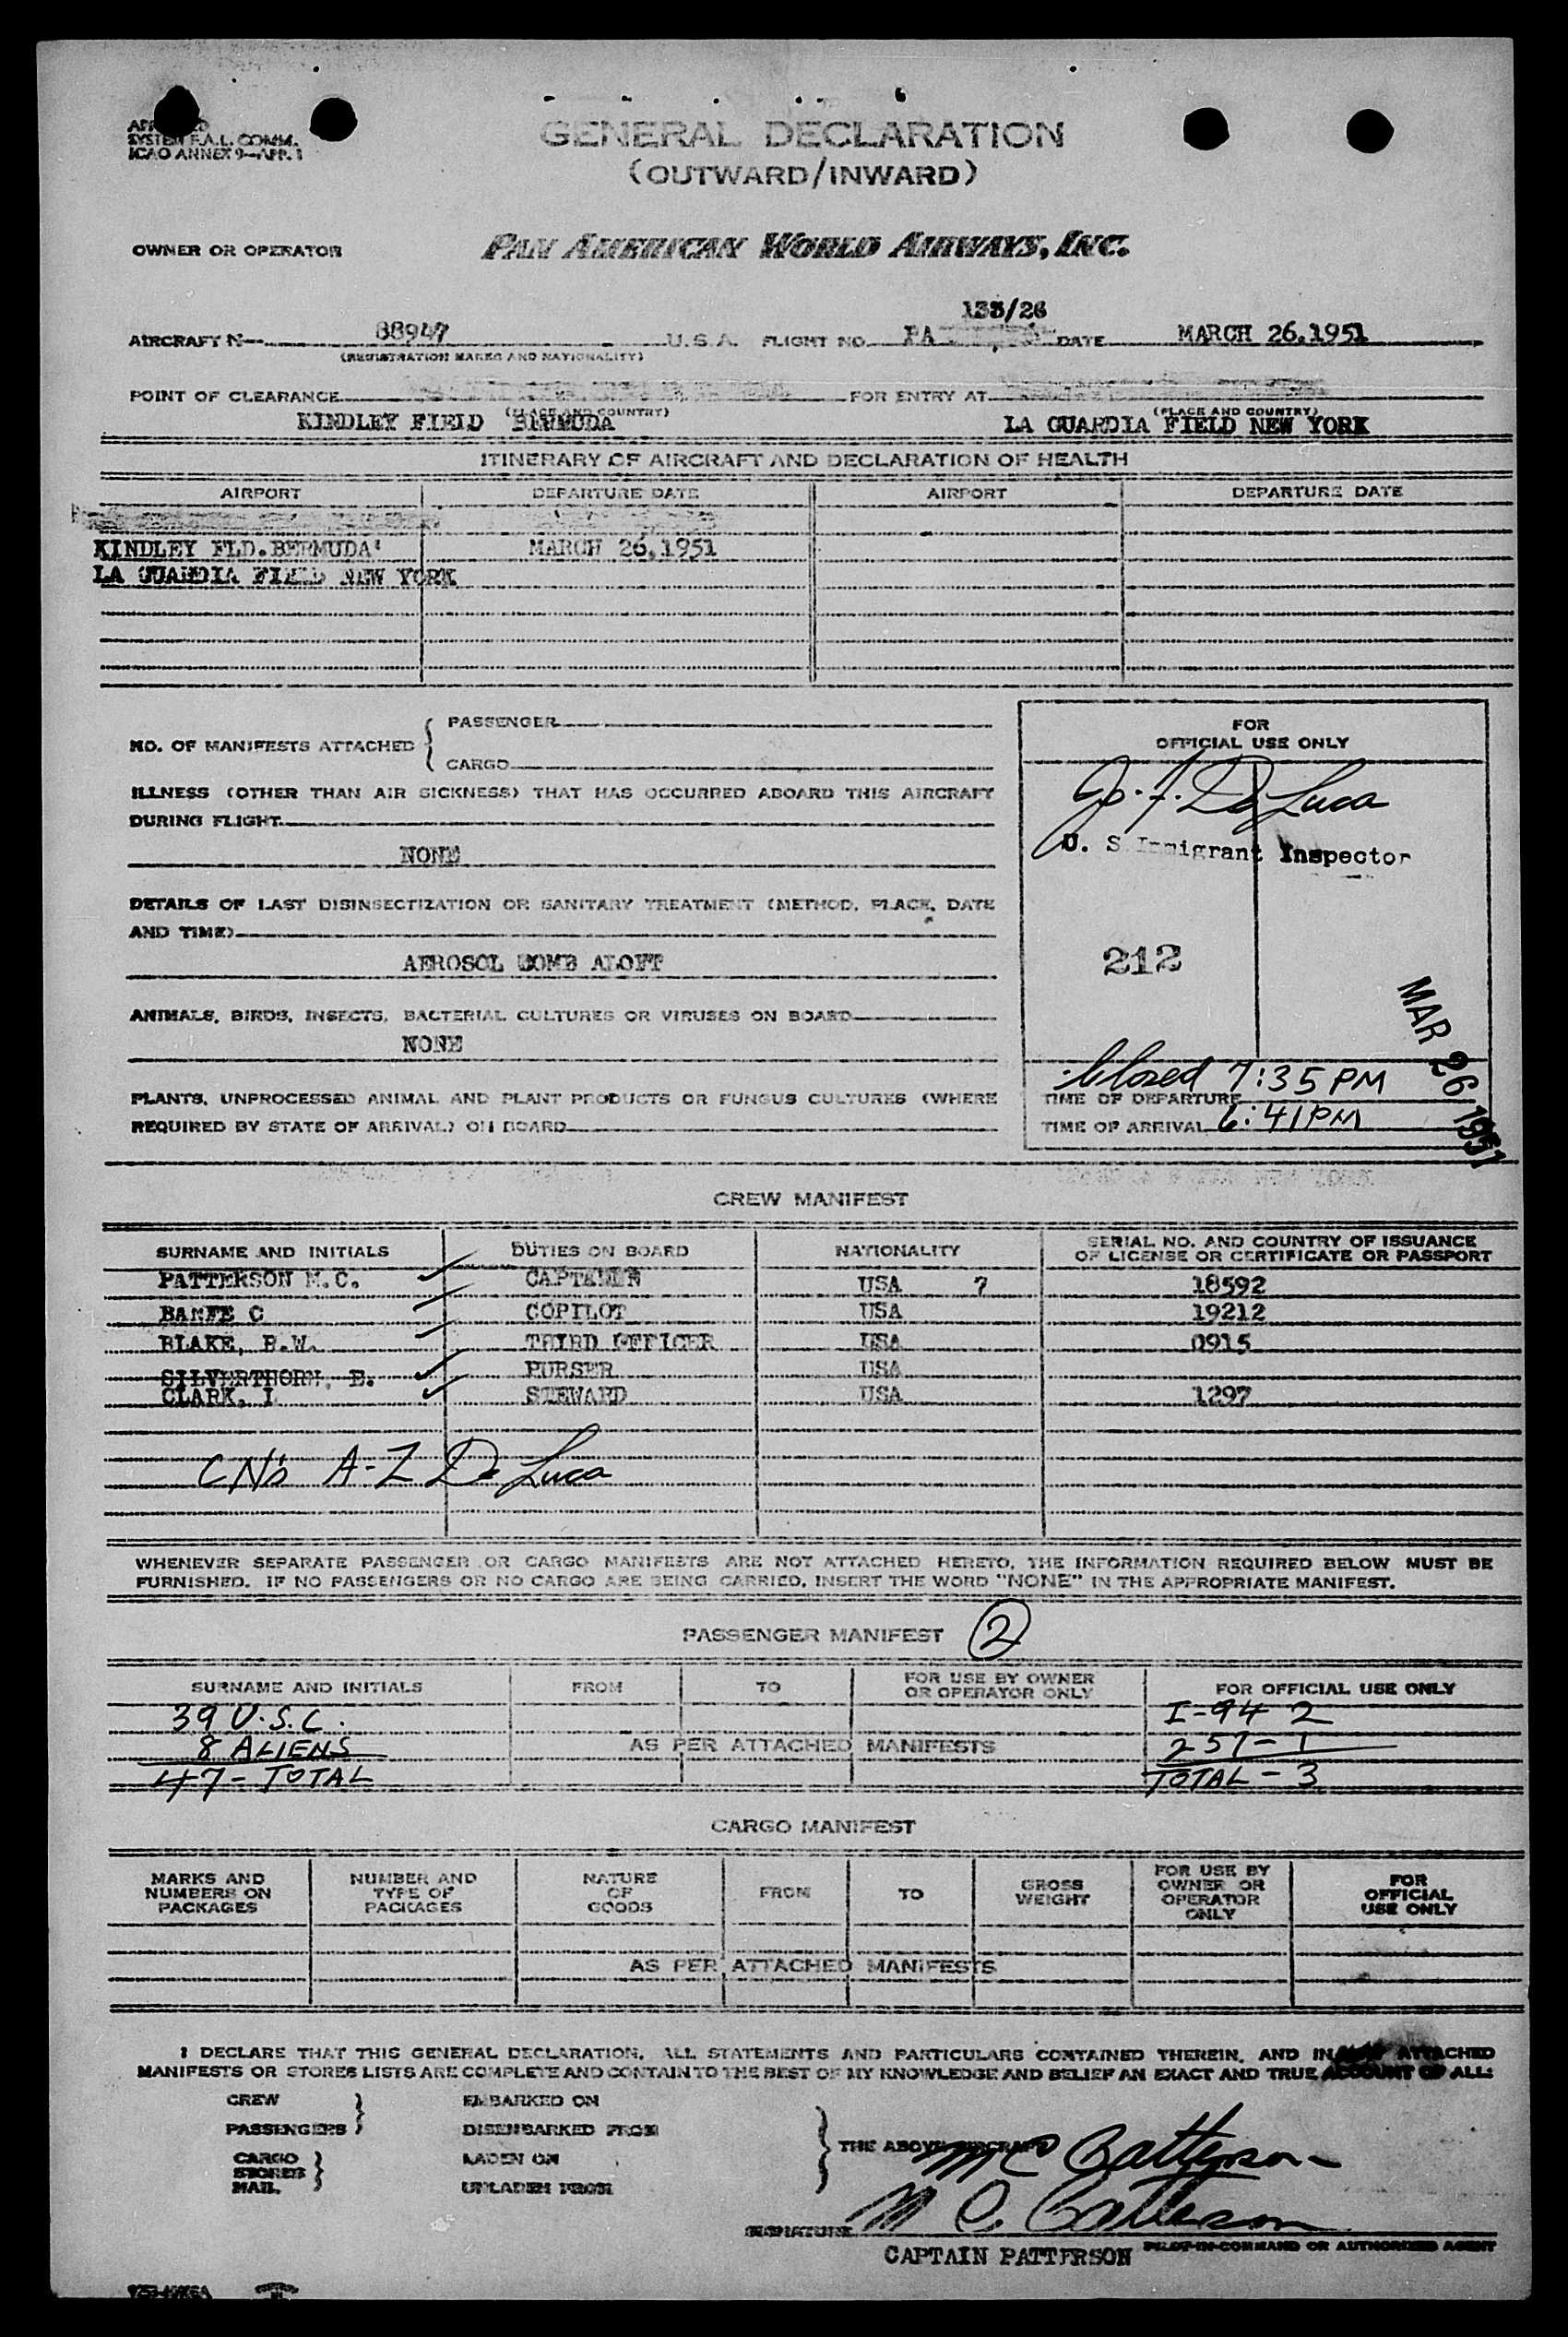 SYSTEM F.A.L. COMM.
ICAO ANNEX 9—APP. 1
GENERAL DECLARATION
(OUTWARD/INWARD)
OWNER OR OPERATOR PAN AMERICAN WORLD AIRWAYS, INC.
/26
AIRCRAFT N- 88947 U.S.A. FLIGHT NO. PA DATE MARCH 26,1951
(REGISTRATION MARKS AND NATIONALITY)
POINT OF CLEARANCE FOR ENTRY AT
(PLACE AND COUNTRY) (PLACE AND COUNTRY)
KINDLEY FIELD BERMUDA LA GUARDIA FIELD NEW YORK
ITINERARY OF AIRCRAFT AND DECLARATION OF HEALTH
AIRPORT DEPARTURE DATE AIRPORT DEPARTURE DATE
KINDLEY FLD.BERMUDA MARCH 26,1951
LA GUARDIA FIELD NEW YORK
NO. OF MANIFESTS ATTACHED { PASSENGER
CARGO
FOR
OFFICIAL USE ONLY
ILLNESS (OTHER THAN AIR SICKNESS) THAT HAS OCCURRED ABOARD THIS AIRCRAFT
DURING FLIGHT
NONE
De Luca
U. S Immigrant Inspector
DETAILS OF LAST DISINSECTIZATION OR SANITARY TREATMENT (METHOD, PLACE, DATE
AND TIME)
AEROSOL BOMB ALOFT
212
ANIMALS, BIRDS, INSECTS, BACTERIAL CULTURES OR VIRUSES ON BOARD
NONE
MAR 26 1951
Closed 7:35 PM
PLANTS, UNPROCESSED ANIMAL AND PLANT PRODUCTS OR FUNGUS CULTURES (WHERE
REQUIRED BY STATE OF ARRIVAL) ON BOARD
TIME OF DEPARTURE
TIME OF ARRIVAL 6:41PM
CREW MANIFEST
SURNAME AND INITIALS DUTIES ON BOARD NATIONALITY SERIAL NO. AND COUNTRY OF ISSUANCE
OF LICENSE OR CERTIFICATE OR PASSPORT
PATTERSON M.C. CAPTAIN USA 7 18592
C COPILOT USA 19212
BLAKE, R.W. THIRD OFFICER USA 0915
SILVERTHORN, E. PURSER USA
CLARK, I STEWARD USA 1297
CN's A-Z De Luca
WHENEVER SEPARATE PASSENGER OR CARGO MANIFESTS ARE NOT ATTACHED HERETO, THE INFORMATION REQUIRED BELOW MUST BE
FURNISHED. IF NO PASSENGERS OR NO CARGO ARE BEING CARRIED, INSERT THE WORD "NONE" IN THE APPROPRIATE MANIFEST.
PASSENGER MANIFEST 2
SURNAME AND INITIALS FROM TO FOR USE BY OWNER
OR OPERATOR ONLY FOR OFFICIAL USE ONLY
39 U.S.C. I-94 2
8 ALIENS AS PER ATTACHED MANIFESTS 257-1
47-TOTAL TOTAL-3
CARGO MANIFEST
MARKS AND
NUMBERS ON
PACKAGES
NUMBER AND
TYPE OF
PACKAGES
NATURE
OF
GOODS
FROM
TO
GROSS
WEIGHT
FOR USE BY
OWNER OR
OPERATOR
ONLY
FOR
OFFICIAL
USE ONLY
AS PER ATTACHED MANIFESTS
I DECLARE THAT THIS GENERAL DECLARATION, ALL STATEMENTS AND PARTICULARS CONTAINED THEREIN, AND IN ATTACHED
MANIFESTS OR STORES LISTS ARE COMPLETE AND CONTAIN TO THE BEST OF MY KNOWLEDGE AND BELIEF AN EXACT AND TRUE ACCOUNT OF ALL:
CREW EMBARKED ON
PASSENGERS DISEMBARKED FROM
CARGO LADEN ON
STORES
MAIL UNLADEN FROM
THE ABOVE AIRCRAFT
M C Patterson
SIGNATURE M C. Patterson
CAPTAIN PATTERSON PILOT-IN-COMMAND OR AUTHORIZED AGENT